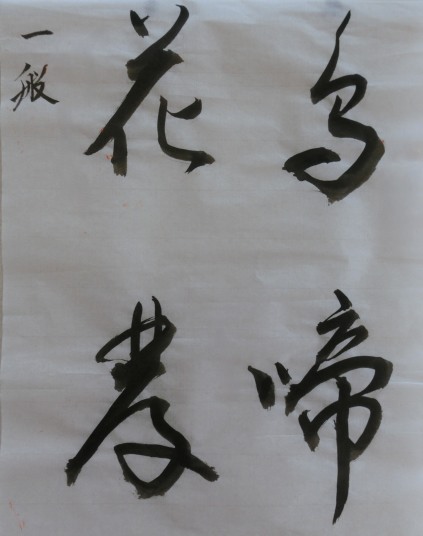 鳥啼
花農
一般